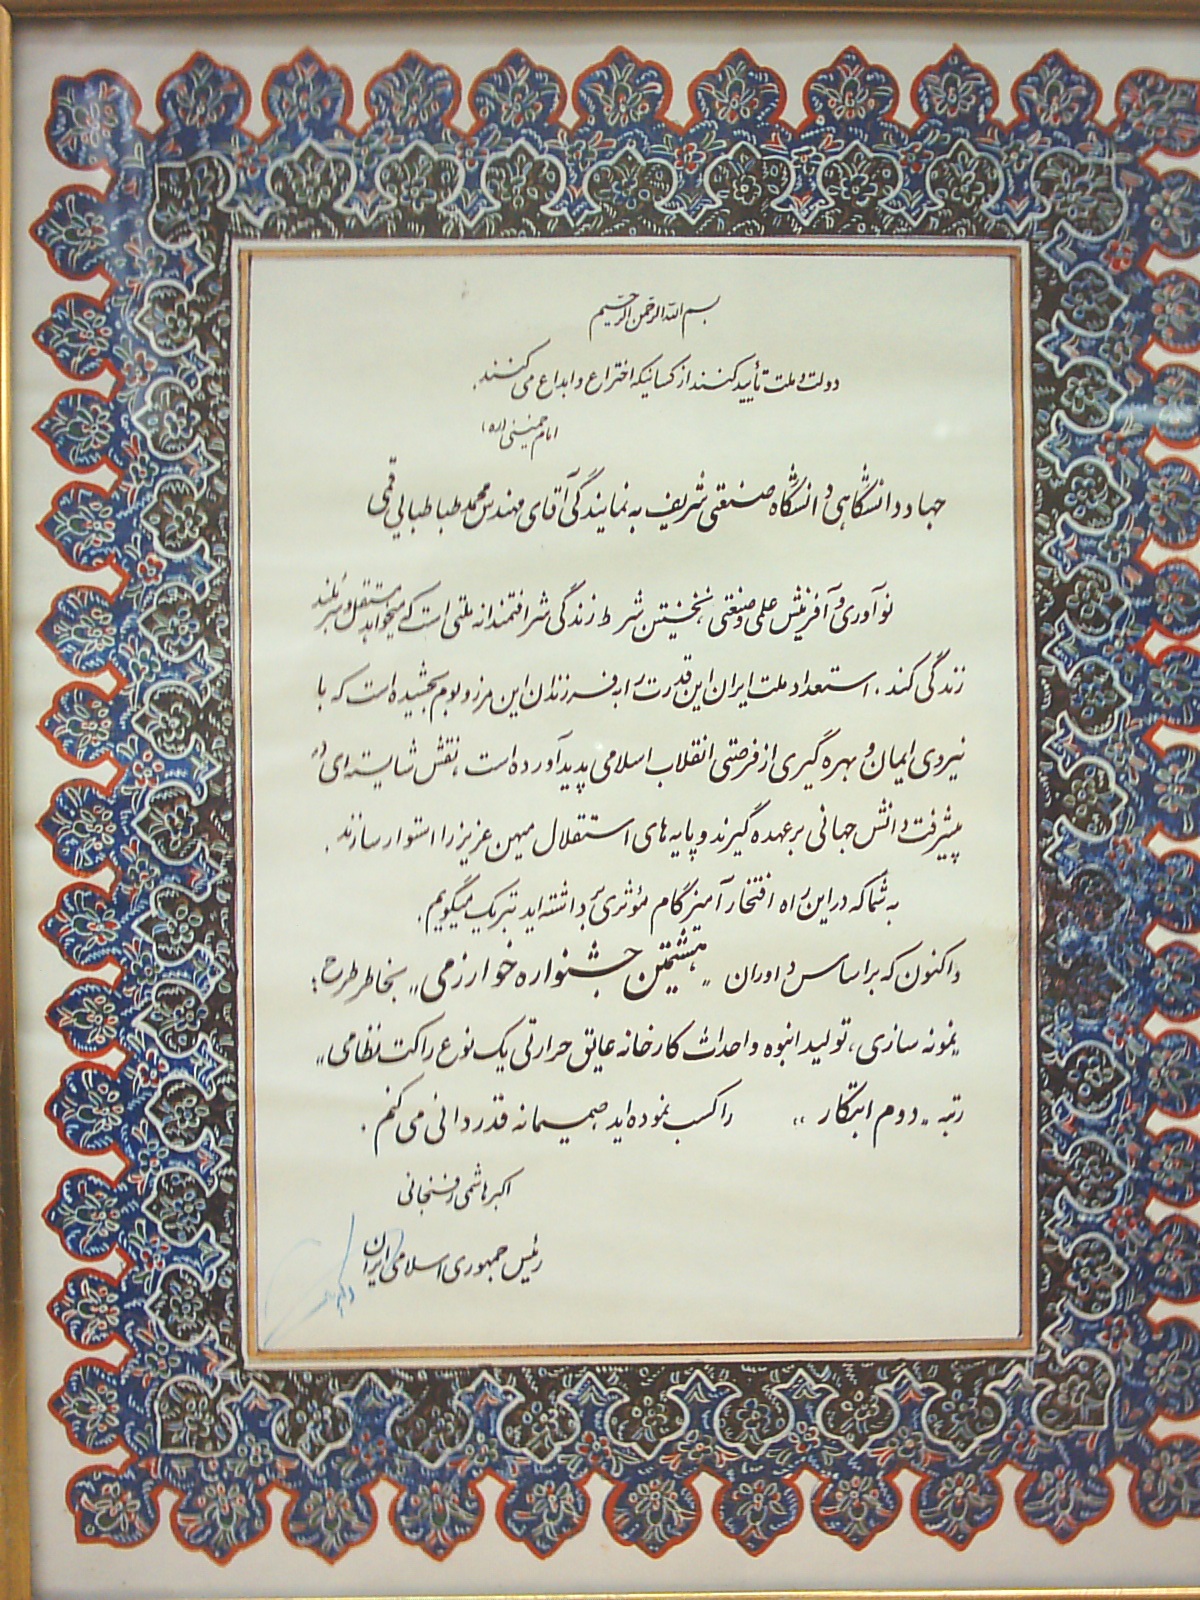 بسم الله الرحمن الرحیم
دولت و ملت تأیید کنند از کسانیکه اختراع و ابداع می کنند.
امام خمینی (ره)
جهاد دانشگاهی دانشگاه صنعتی شریف به نمایندگی آقای مهندس محمد طباطبایی قمی
نوآوری و آفرینش علمی و صنعتی نخستین شرط زندگی شرافتمندانه ملتی است که میخواهد مستقل و سربلند
زندگی کند. استعداد ملت ایران این قدرت را به فرزندان این مرز و بوم بخشیده است که با
نیروی ایمان و بهره گیری از فرصتی انقلاب اسلامی پدید آورده است، نقش شایسته ای در
پیشرفت دانش جهانی بر عهده گیرند و پایه های استقلال میهن عزیز را استوار سازند.
به شما که در این راه افتخار آمیز گام مؤثری برداشته اید تبریک میگویم.
و اکنون که بر اساس داوران «هشتمین جشنواره خوارزمی» بخاطر طرح؛
«نمونه سازی، تولید انبوه و احداث کارخانه عایق حرارتی یک نوع راکت نظامی»
رتبه «دوم ابتکار» را کسب نموده اید صمیمانه قدردانی می کنم.
اکبر هاشمی رفسنجانی
رئیس جمهوری اسلامی ایران